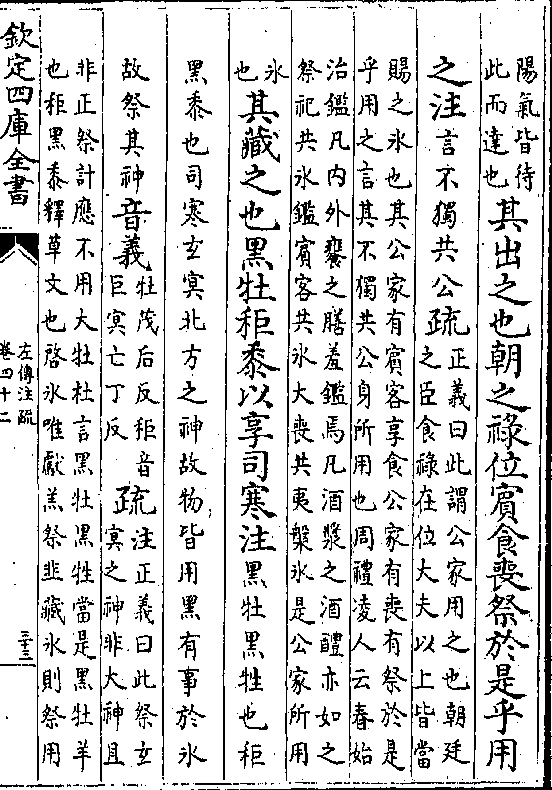 陽氣皆待
此而達也
其出之也朝之祿位賓食喪祭於是乎用
之注
言不獨共公
疏
正義曰此謂公家用之也朝廷
之臣食祿在位大夫以上皆當
賜之氷也其公家有賓客享食公家有喪有祭於是
乎用之言其不獨共公身所用也周禮凌人云春始
治鑑凡内外饔之膳羞鑑焉凡酒漿之酒醴亦如之
祭祀共氷鑑賓客共氷大喪共夷槃氷是公家所用
氷
也
其藏之也黑牡秬黍以享司寒注
黑牡黑牲也秬
黑黍也司寒玄冥北方之神故物皆用黑有事於氷
故祭其神
音義
牡茂后反秬音
巨冥亡丁反
疏
注正義曰此祭玄
冥之神非大神且
非正祭計應不用大牡杜言黑牡黑牲當是黑牡羊
也秬黑黍釋草文也啓氷唯獻羔祭韭藏氷則祭用
欽定四庫全書
左傳注疏
卷四十二
三十三